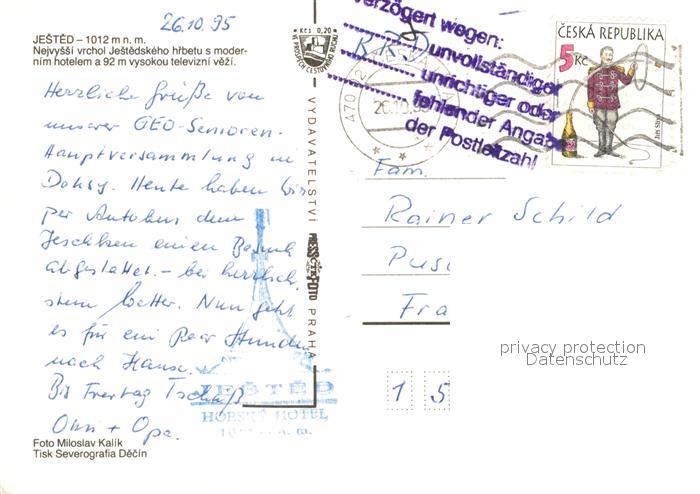 26.10.95
JEŠTĚD – 1012 m n. m.
Nejvyšší vrchol Ještědského hřbetu s moder-
ním hotelem a 92 m vysokou televizní věží.
Herzliche Grüße von
unserer GEO-Senioren-
Hauptversammlung in
Doksy. Heute haben wir
per Autobus dem
Jeschken einen Besuch
abgestattet. – bei herrlich-
stem Wetter. Nun geht
es für ein paar Stunden
nach Hause.
Bis Freitag Tschüß
Oma + Opa.
Foto Miloslav Kalík
Tisk Severografia Děčín
Kčs 0,20
VE PROSPĚCH CESTOVNÍHO RUCHU
VYDAVATELSTVÍ PRESSFOTO PRAHA
JEŠTĚD
HORSKÝ HOTEL
1012 m n. m.
verzögert wegen:
unvollständiger
unrichtiger oder
fehlender Angabe
der Postleitzahl
BRD
470 02
26.10.95
ČESKÁ REPUBLIKA
5 Kč
Fam.
Rainer Schild
Pus
Fra
1 5
privacy protection
Datenschutz